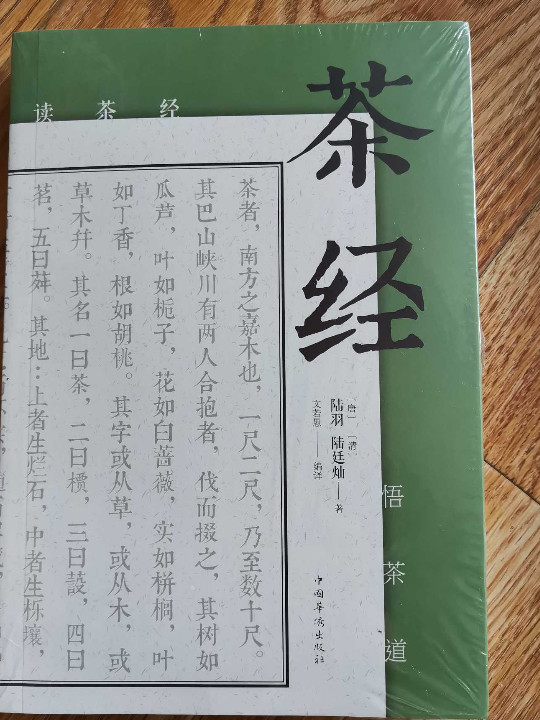 读茶经
茶经
茶者，南方之嘉木也，一尺二尺，乃至数十尺。
其巴山峡川有两人合抱者，伐而掇之，其树如
瓜芦，叶如栀子，花如白蔷薇，实如栟榈，叶
如丁香，根如胡桃。其字或从草，或从木，或
草木并。其名一曰茶，二曰槚，三曰蔎，四曰
茗，五曰荈。其地：上者生烂石，中者生栎壤，
［唐］ ［清］
陆羽 陆廷灿——著
文若愚——编译
中國華僑出版社
悟茶道